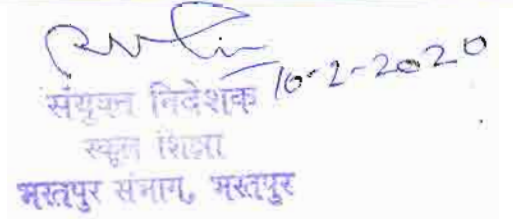 10-2-2020
संयुक्त निदेशक
स्कूल शिक्षा
भरतपुर संभाग, भरतपुर